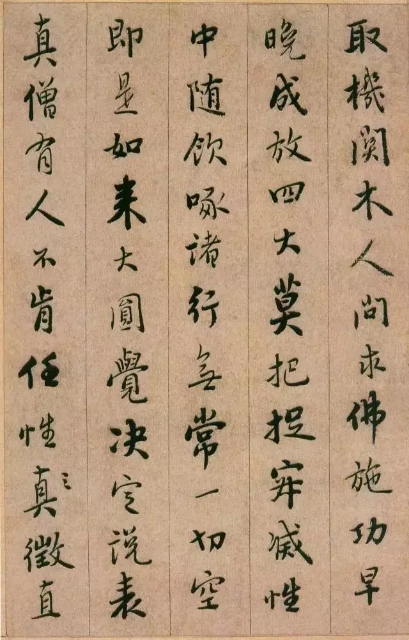 取機関木人问求佛施功早
晚成放四大莫把捉寂滅性
中随飲啄諸行無常一切空
即是如来大圓覺决定説表
真僧有人不肯任性情真徵直